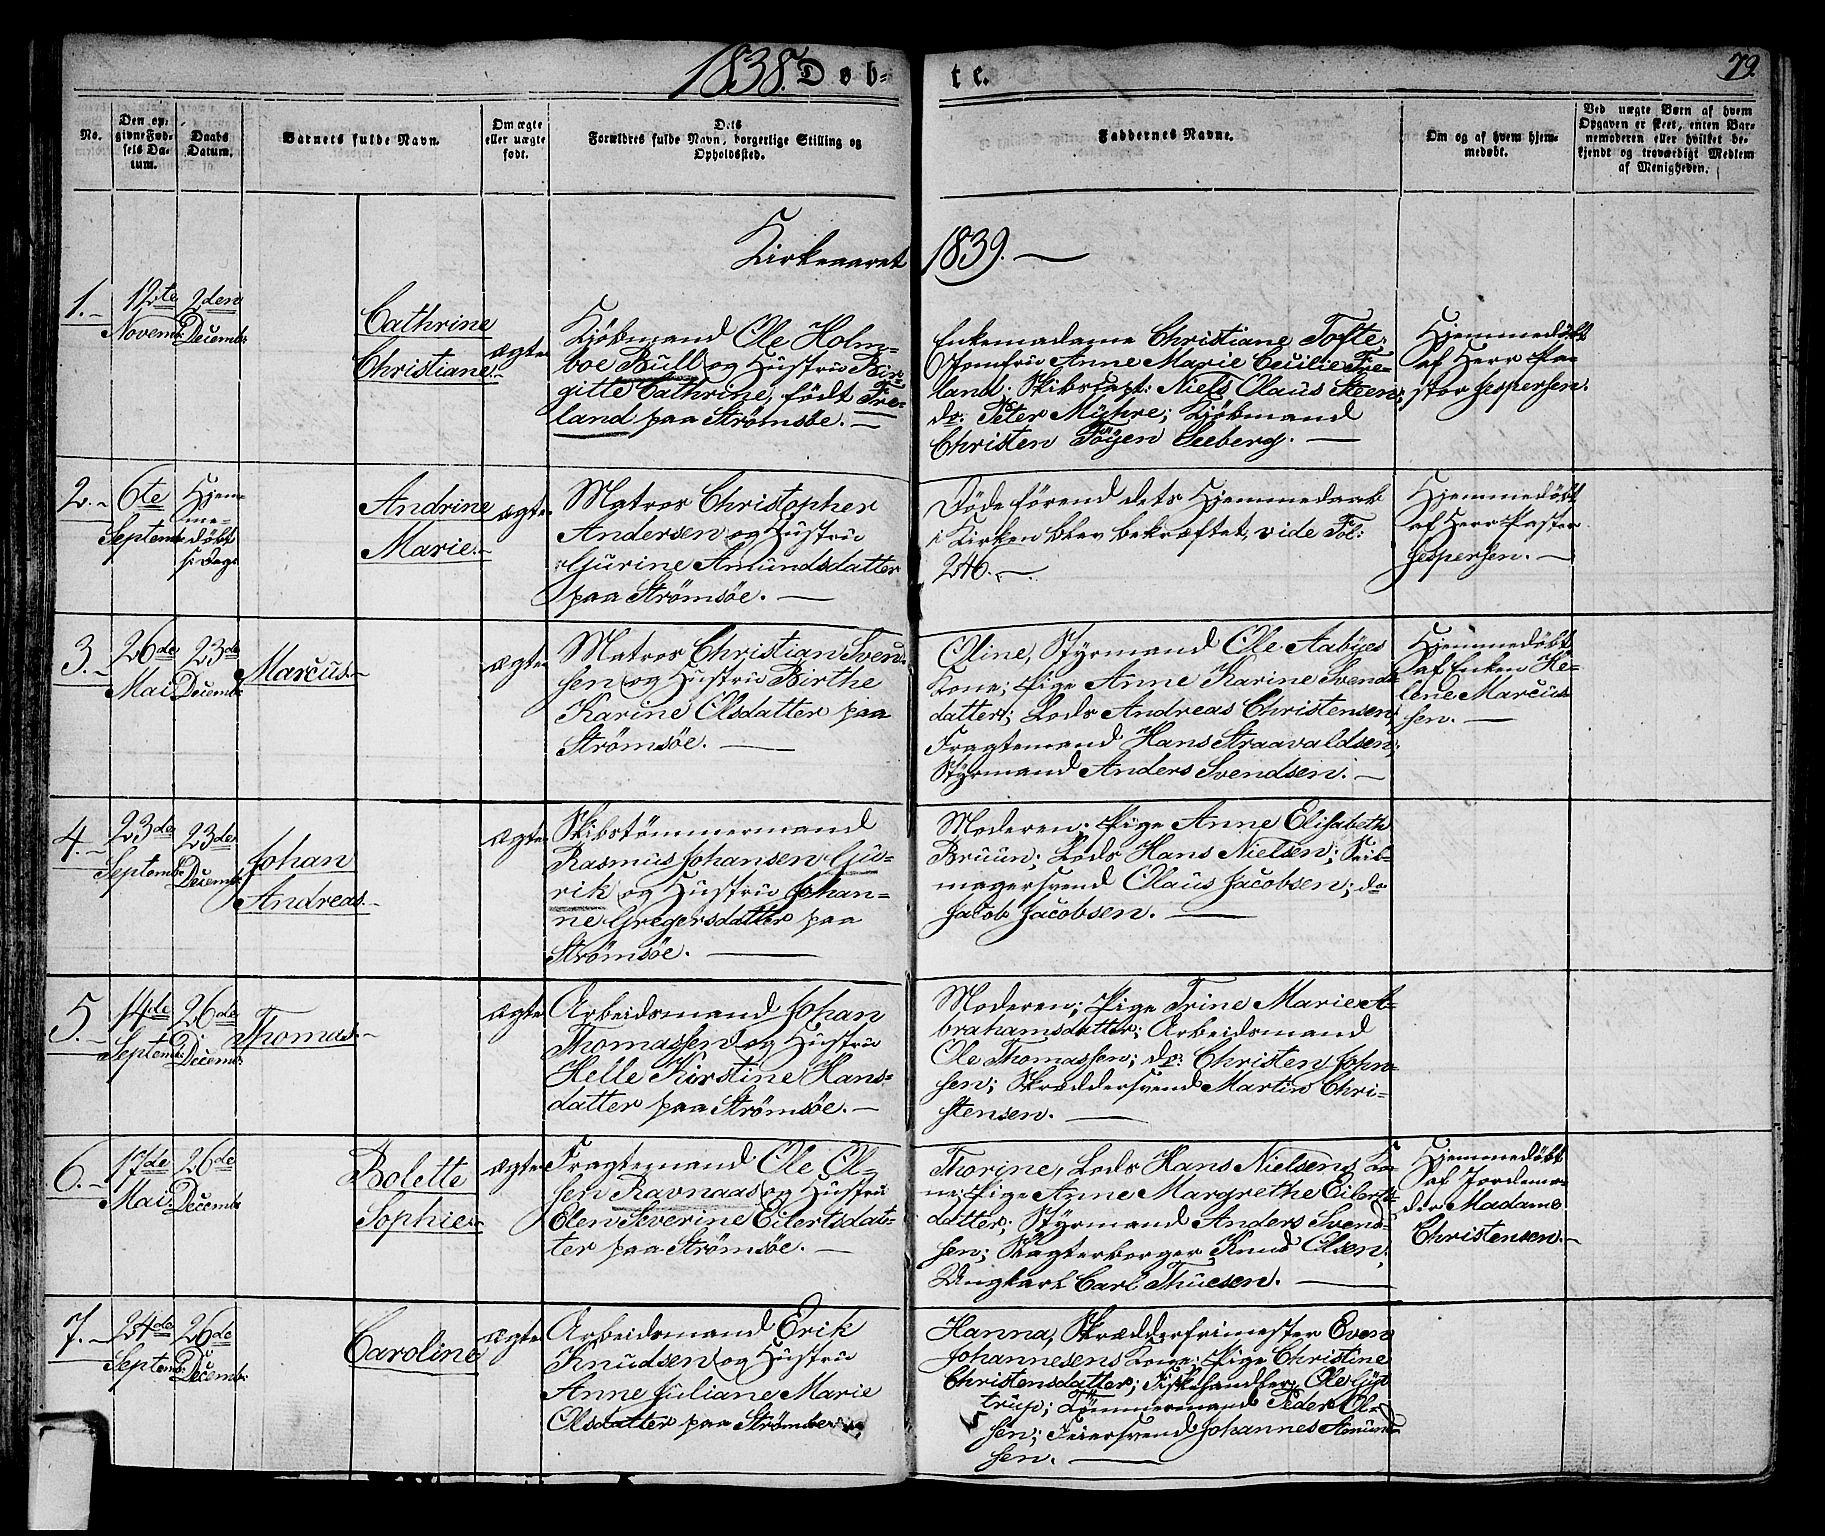 1838. Døb-
te.
79.
No.
Den op-
givne Fød-
sels Da-
tum.
Daabs
Datum.
Barnets fulde Navn.
Om ægte
eller uægte
født.
Dets
Forældres fulde Navn, borgerlige Stilling og
Opholdssted.
Faddernes Navne.
Om og af hvem hjem-
medøbt.
Ved uægte Børn af hvem
Opgaven er skeet, enten Bar-
nemoderen eller hvilket be-
kjendt og troværdigt Medlem
af Menigheden.
Kirkeaaret 1839.—
1.-
12te
Novemb:
2den
Decemb:
Cathrine
Christiane.-
ægte
Kjöbmand Ole Holm-
boe Bull og Hustru Bir-
gitte Cathrine, födt Fre-
land paa Strömsöe.—
Enkemadame Christiane Tofte;
Jomfru Anne Marie Cecilie Fre-
land; Skibscapt: Niels Claus Steen;
do: Peter Myhre; Kjöbmand
Christen Föyen Seeberg.—
Hjemmedöbt
af Herr Pa-
stor Jespersen.
2.-
6te
Septemb:
Hjem-
me-
döbt
Andrine
Marie.-
ægte
Matros Christopher
Andersen og Hustru
Gurine Amundsdatter
paa Strömsöe.—
Döde förend dets Hjemmedaab
i Kirken blev bekræftet, vide Fol:
246.—
Hjemmedöbt
af Herr Pastor
Jespersen.—
3.-
26de
Mai
23de
Decemb:
Marcus.-
ægte
Matros Christian Sven-
sen og Hustru Birthe
Karine Olsdatter paa
Strömsöe.—
Oline, Styrmand Ole Aabyes
Kone; Pige Anne Karine Svends-
datter; Lods Andreas Christensen;
Fragtemand Hans Straavaldsen;
Styrmand Anders Svendsen.—
Hjemmedöbt
af Enken He-
lene Marcus-
sen.—
4.-
23de
Septemb:
23de
Decemb:
Johan
Andreas.-
ægte
Skibstömmermand
Rasmus Johansen Gu-
rik og Hustru Johan-
ne Gregersdatter paa
Strömsöe.—
Moderen; Pige Anne Elisabeth
Bruun; Lods Hans Nielsen; Seil-
magersvend Claus Jacobsen; do
Jacob Jacobsen.—
5.-
14de
Septemb:
26de
Decemb:
Thomas.-
ægte
Arbeidsmand Johan
Thomassen og Hustru
Helle Kirstine Hans-
datter paa Strömsöe.—
Moderen; Pige Trine Marie A-
brahamsdatter; Arbeidsmand
Ole Thomassen; do: Christen John-
sen; Skræddersvend Martin Chri-
stensen.—
6.-
17de
Mai
26de
Decemb:
Bolette
Sophie.-
ægte
Fragtemand Ole Ol-
sen Ravnaas og Hustru
Elen Severine Eilertsdat-
ter paa Strömsöe.—
Thorine, Lods Hans Nielsens Ko-
ne; Pige Anne Margrethe Eilerts-
datter; Styrmand Anders Svend-
sen; Slagterborger Knud Olsen;
Ungkarl Carl Thuesen.—
Hjemmedöbt
af Jordemo-
der Madame
Christensen.-
7.-
24de
Septemb:
26de
Decemb:
Caroline
ægte
Arbeidsmand Erik
Knudsen og Hustru
Anne Juliane Marie
Olsdatter paa Strömsöe
Hanna, Skrædderfrimester Even
Johannesens Kone; Pige Christine
Christensdatter; Fiskehandler Ole Gyt-
trup; Tömmermand Peder Ol-
sen; Feiersvend Johannes Amund-
sen.—